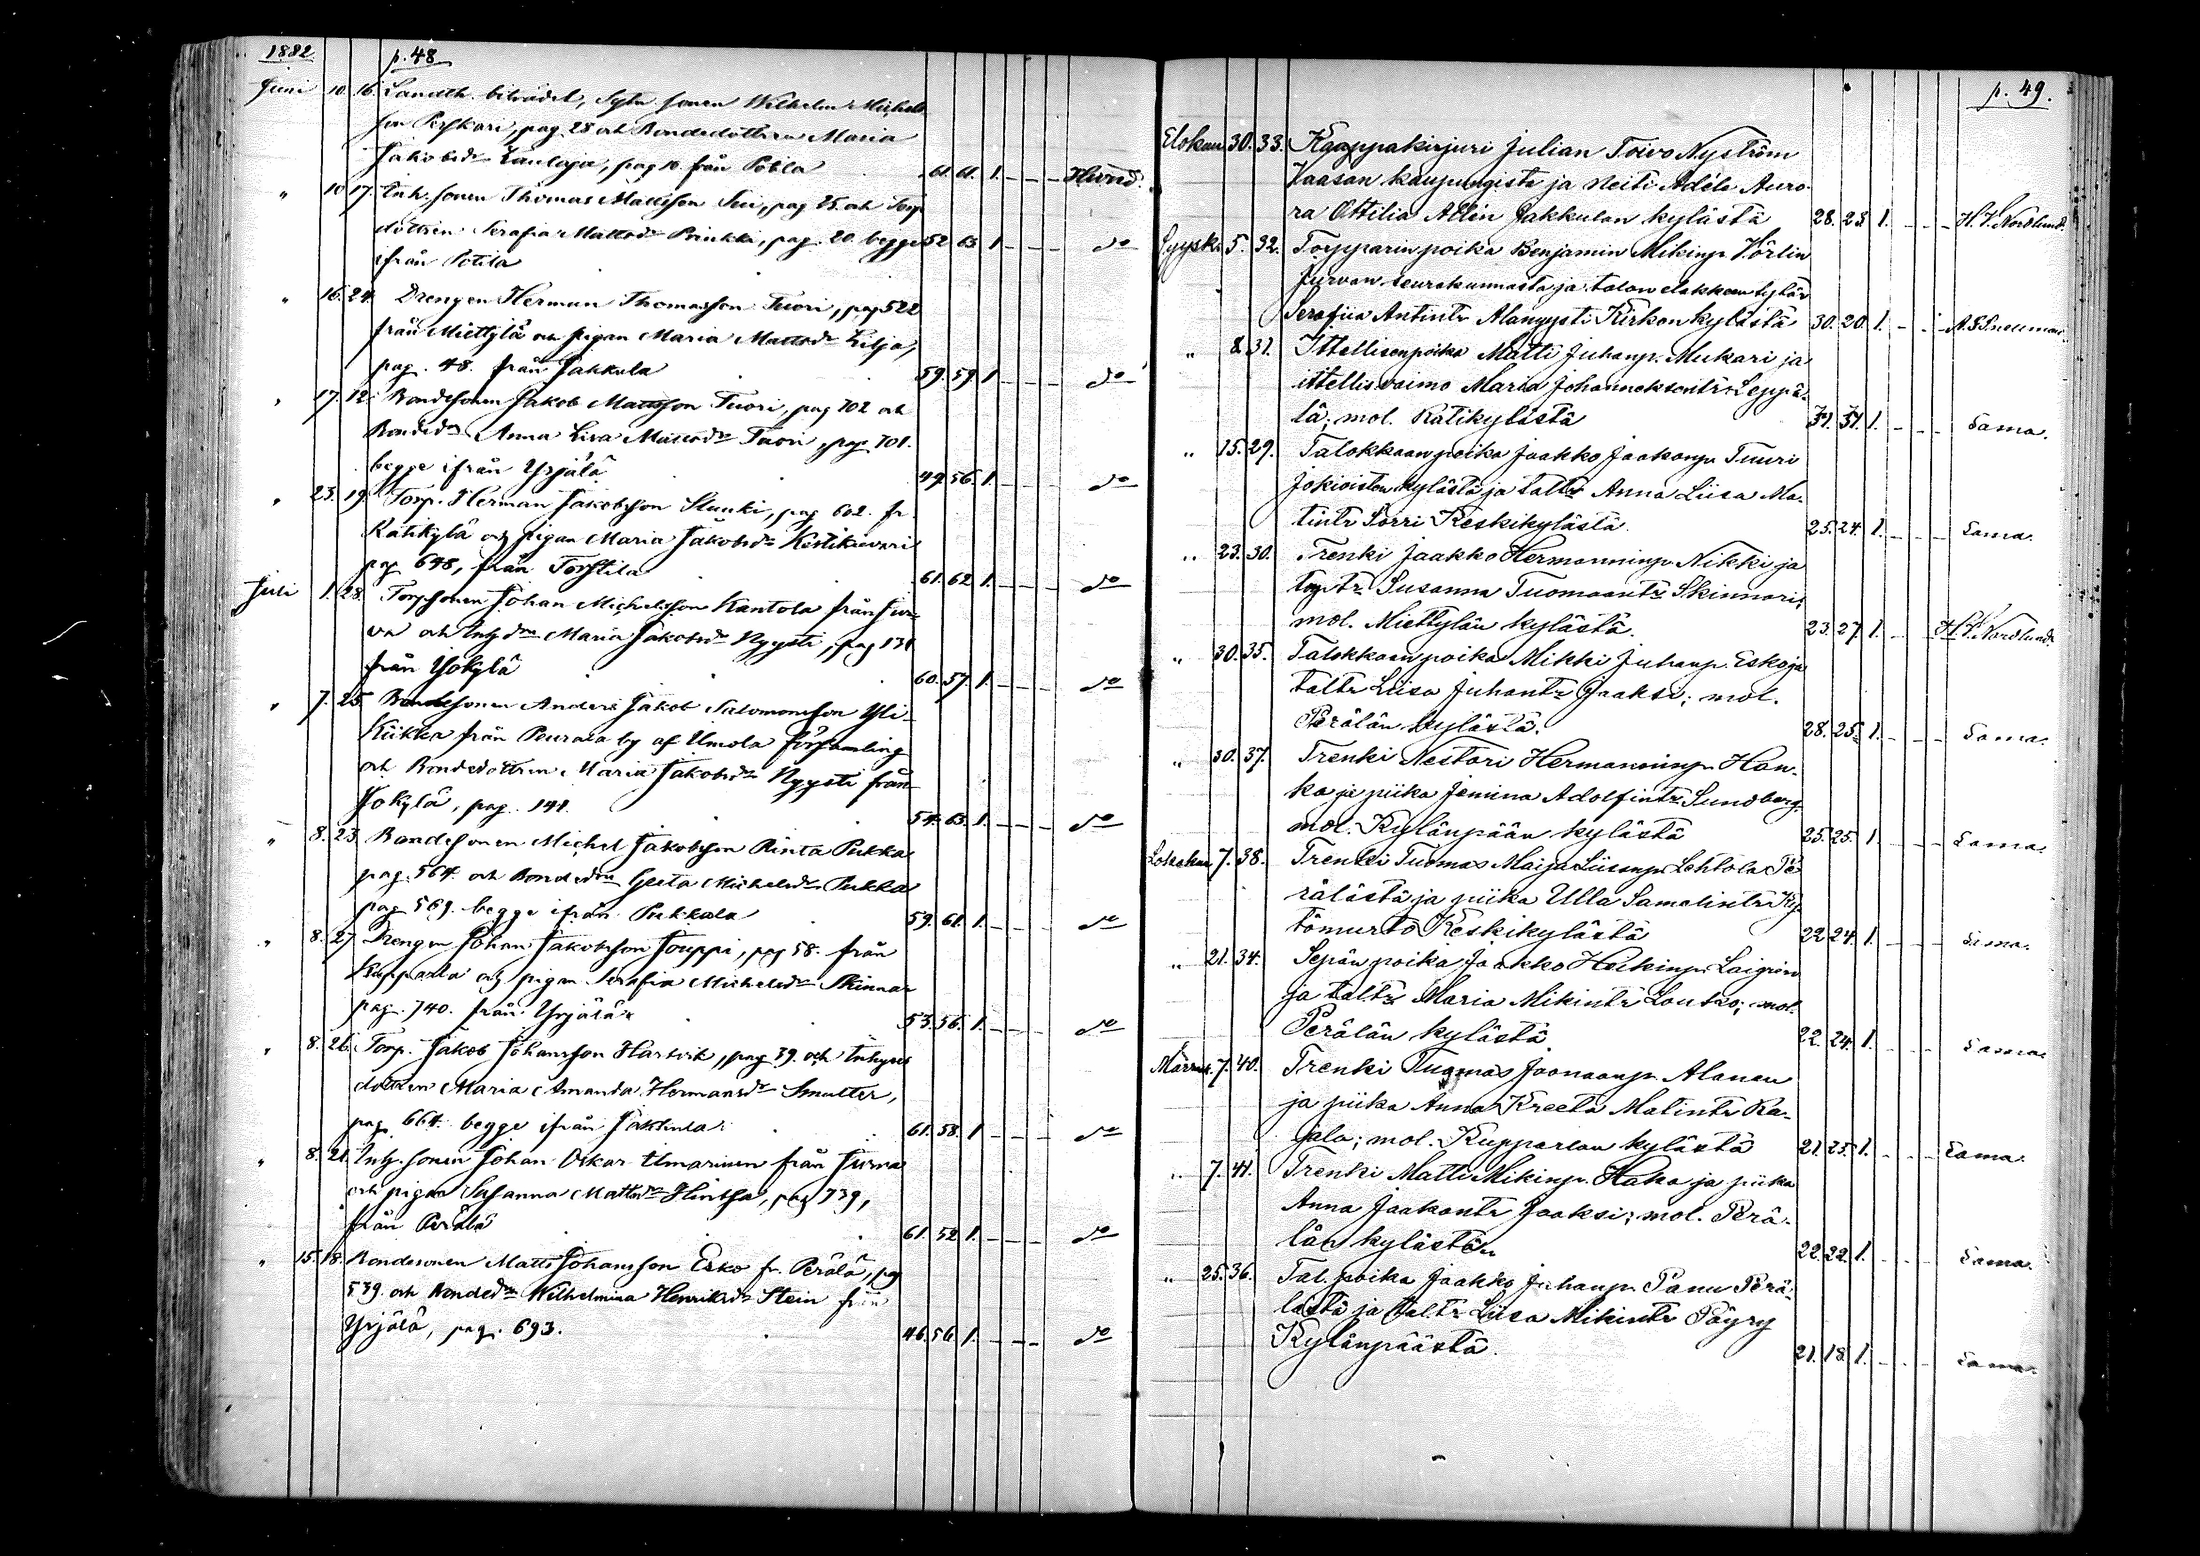 1882 p. 48
Juni 10. 16. Landth. biträdet, Sytn. sonen Wilhelm Michels
son Perkari, pag 28 och Bondedottren Maria
Jakobsdr Laulaja, pag 10 från Potila 61. 61. 1. - - - Hwud.
" 10 17. Inh. sonen Thomas Mattsson Sui, pag 25. och Torp
dottren Serafia Mattsdr Prinkki, pag. 20. begge 52 63 1 - - - do
ifrån Potila
" 16. 24. Drengen Herman Thomasson Tuori, pag 522
från Miettylä och pigan Maria Mattsdr Lilja,
pag. 48. från Jakkula 59. 59 1 - - - do
" 17. 12. Bondesonen Jakob Mattsson Tuori, pag 702 och
Bondedn Anna Lisa Mattsdr Tuori, pag 701.
begge ifrån Yrjälä 49. 56. 1. - - - do
" 23. 19. Torp. Herman Jakobsson Stuuki, pag 602. fr.
Ratikylä och pigan Maria Jakobsdr Kestikievari
pag 648, från Torstila 61. 62. 1. - - - do
Juli 1. 28. Torpsonen Johan Michelsson Kantola från Jur-
va och Inhdn Maria Jakobsdr Nyysti, pag 131
från Jokylä 60. 57. 1. - - - do
" 7. 25. Bondesonen Anders Jakob Salomonsson Yli
Kiikka från Peurala by af Umola församling
och Bondedottren Maria Jakobsdr Nyysti från
Jokylä, pag. 141. 54. 63. 1. - - - do
" 8. 23. Bondesonen Michel Jakobsson Rinta Pukka
pag. 564. och Bondedn Greta Michelsdr Pukka
pag 569. begge ifrån Pukkala 59. 61. 1. - - - do
" 8. 27. Drengen Johan Jakobsson Jouppi, pag 58. från
Kupparla och pigan Serafia Michelsdr Skinnar
pag. 740. från Yrjälä 53. 56. 1. - - - do
" 8. 26. Torp. Jakob Johansson Harvik, pag 39. och Inhyses
dottren Maria Amanda Hermansdr Smutter,
pag. 664. begge ifrån Jakkula 61. 58. 1 - - - do
" 8. 21. Inh. sonen Johan Oskar Ilmarinen från Jurva
och pigan Susanna Mattsdr Hintsa, pag 739,
från Perälä 61. 52 1 - - - do
" 15. 18. Bondesonen Matts Johansson Esko fr. Perälä, pag
539. och Bondedn Wilhelmina Henriksdr Stein från
Yrjälä, pag. 693. 46. 56. 1. - - - do
p. 49.
Elokuu 30. 33. Kauppakirjuri Julian Toivo Nyström
Vaasan kaupungista ja Neiti Adéle Auro-
ra Ottilia Allén Jakkulan kylästä 28. 23. 1. - - - H. V. Nordlund.
Syysk. 5. 32. Torpparin poika Benjamin Mikinp. Hörlin
Jurvan seurakunnasta ja talon elakkaan tytär
Serafiia Antintr Alanyysti Kirkon kylästä 30. 20. 1. - - -
" 8. 31. Ittellisenpoika Matti Juhanp. Mukari ja
ittellis.vaimo Maria Johanneksentr. Leppä-
lä; mol. Ratikylästä 31. 1. - - - Sama.
" 15. 29. Talokkaanpoika Jaakko Jaakonp. Tuuri
Jokioisten kylästä ja taltr Anna Liisa Ma-
tintr Sorri Keskikylästä. 25. 24. 1. - - - Sama.
" 23. 30. Trenki Jaakko Hermanninp. Nikki ja
torp.tr Susanna Tuomaantr Skinnari;
mol. Miettylän kylästä. 23. 27. 1. - - H. V. Nordlund.
" 30. 35. Talokkaanpoika Mikki Juhanp. Esko ja
taltr Liisa Juhantr Jaaksi; mol.
Perälän kylästä. 28. 25. 1. - - - Sama.
" 30. 37. Trenki Nestori Hermanninp. Hon-
ko ja piika Jemina Adolfintr Sundberg
mol. Kylänpään kylästä 25. 25. 1 - - - Sama.
Lokakuu 7. 38. Trenki Tuomas Maija Liisanp. Lehtola Pe-
rälästä ja piika Ulla Samelintr Ky-
tömurto Keskikylästä 22 24. 1. - - - Sama.
" 21. 34. Sepän poika Jaakko Heikinp. Laigren
ja taltr Maria Mikintr Louko; mol.
Perälän kylästä. 22. 24. 1. - - - Sama.
Marrask. 7. 40. Trenki Tuomas Joonaanp. Alanen
ja piika Anna Kreeta Matintr Ra-
jala; mol. Kupparlan kylästä 21. 25. 1. - - - Sama.
" 7. 41. Trenki Matti Mikinp. Haka ja piika
Anna Jaakontr Jaaksi; mol. Perä-
län kylästä 22. 22. 1. - - - Sama.
" 25. 36. Tal. poika Jaakko Juhanp. Panu Perä-
lästä ja taltr Liisa Mikintr Päyry
Kylänpäästä. 21. 18. 1. - - - Sama.